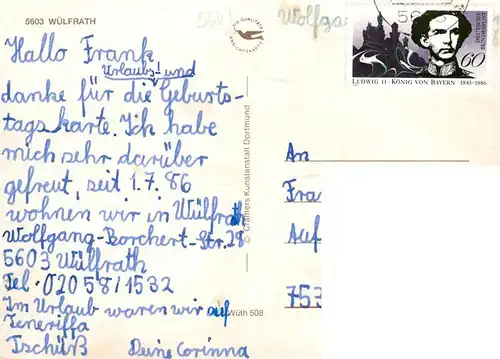 5603 WÜLFRATH
Hallo Frank
Urlaubs- und
danke für die Geburts-
tagskarte. Ich habe
mich sehr darüber
gefreut, seit 1.7.86
wohnen wir in Wülfrath
Wolfgang-Borchert-Str. 28
5603 Wülfrath
Tel. 02058/1532
Im Urlaub waren wir auf
Teneriffa
Tschüß Deine Corinna
DIE QUALITÄTS
ANSICHTSKARTE
© Cramers Kunstanstalt Dortmund
Wüth 508
Wolfgang
DEUTSCHE BUNDESPOST
60
LUDWIG II · KÖNIG VON BAYERN 1845-1886
An
Fra
Auf
753